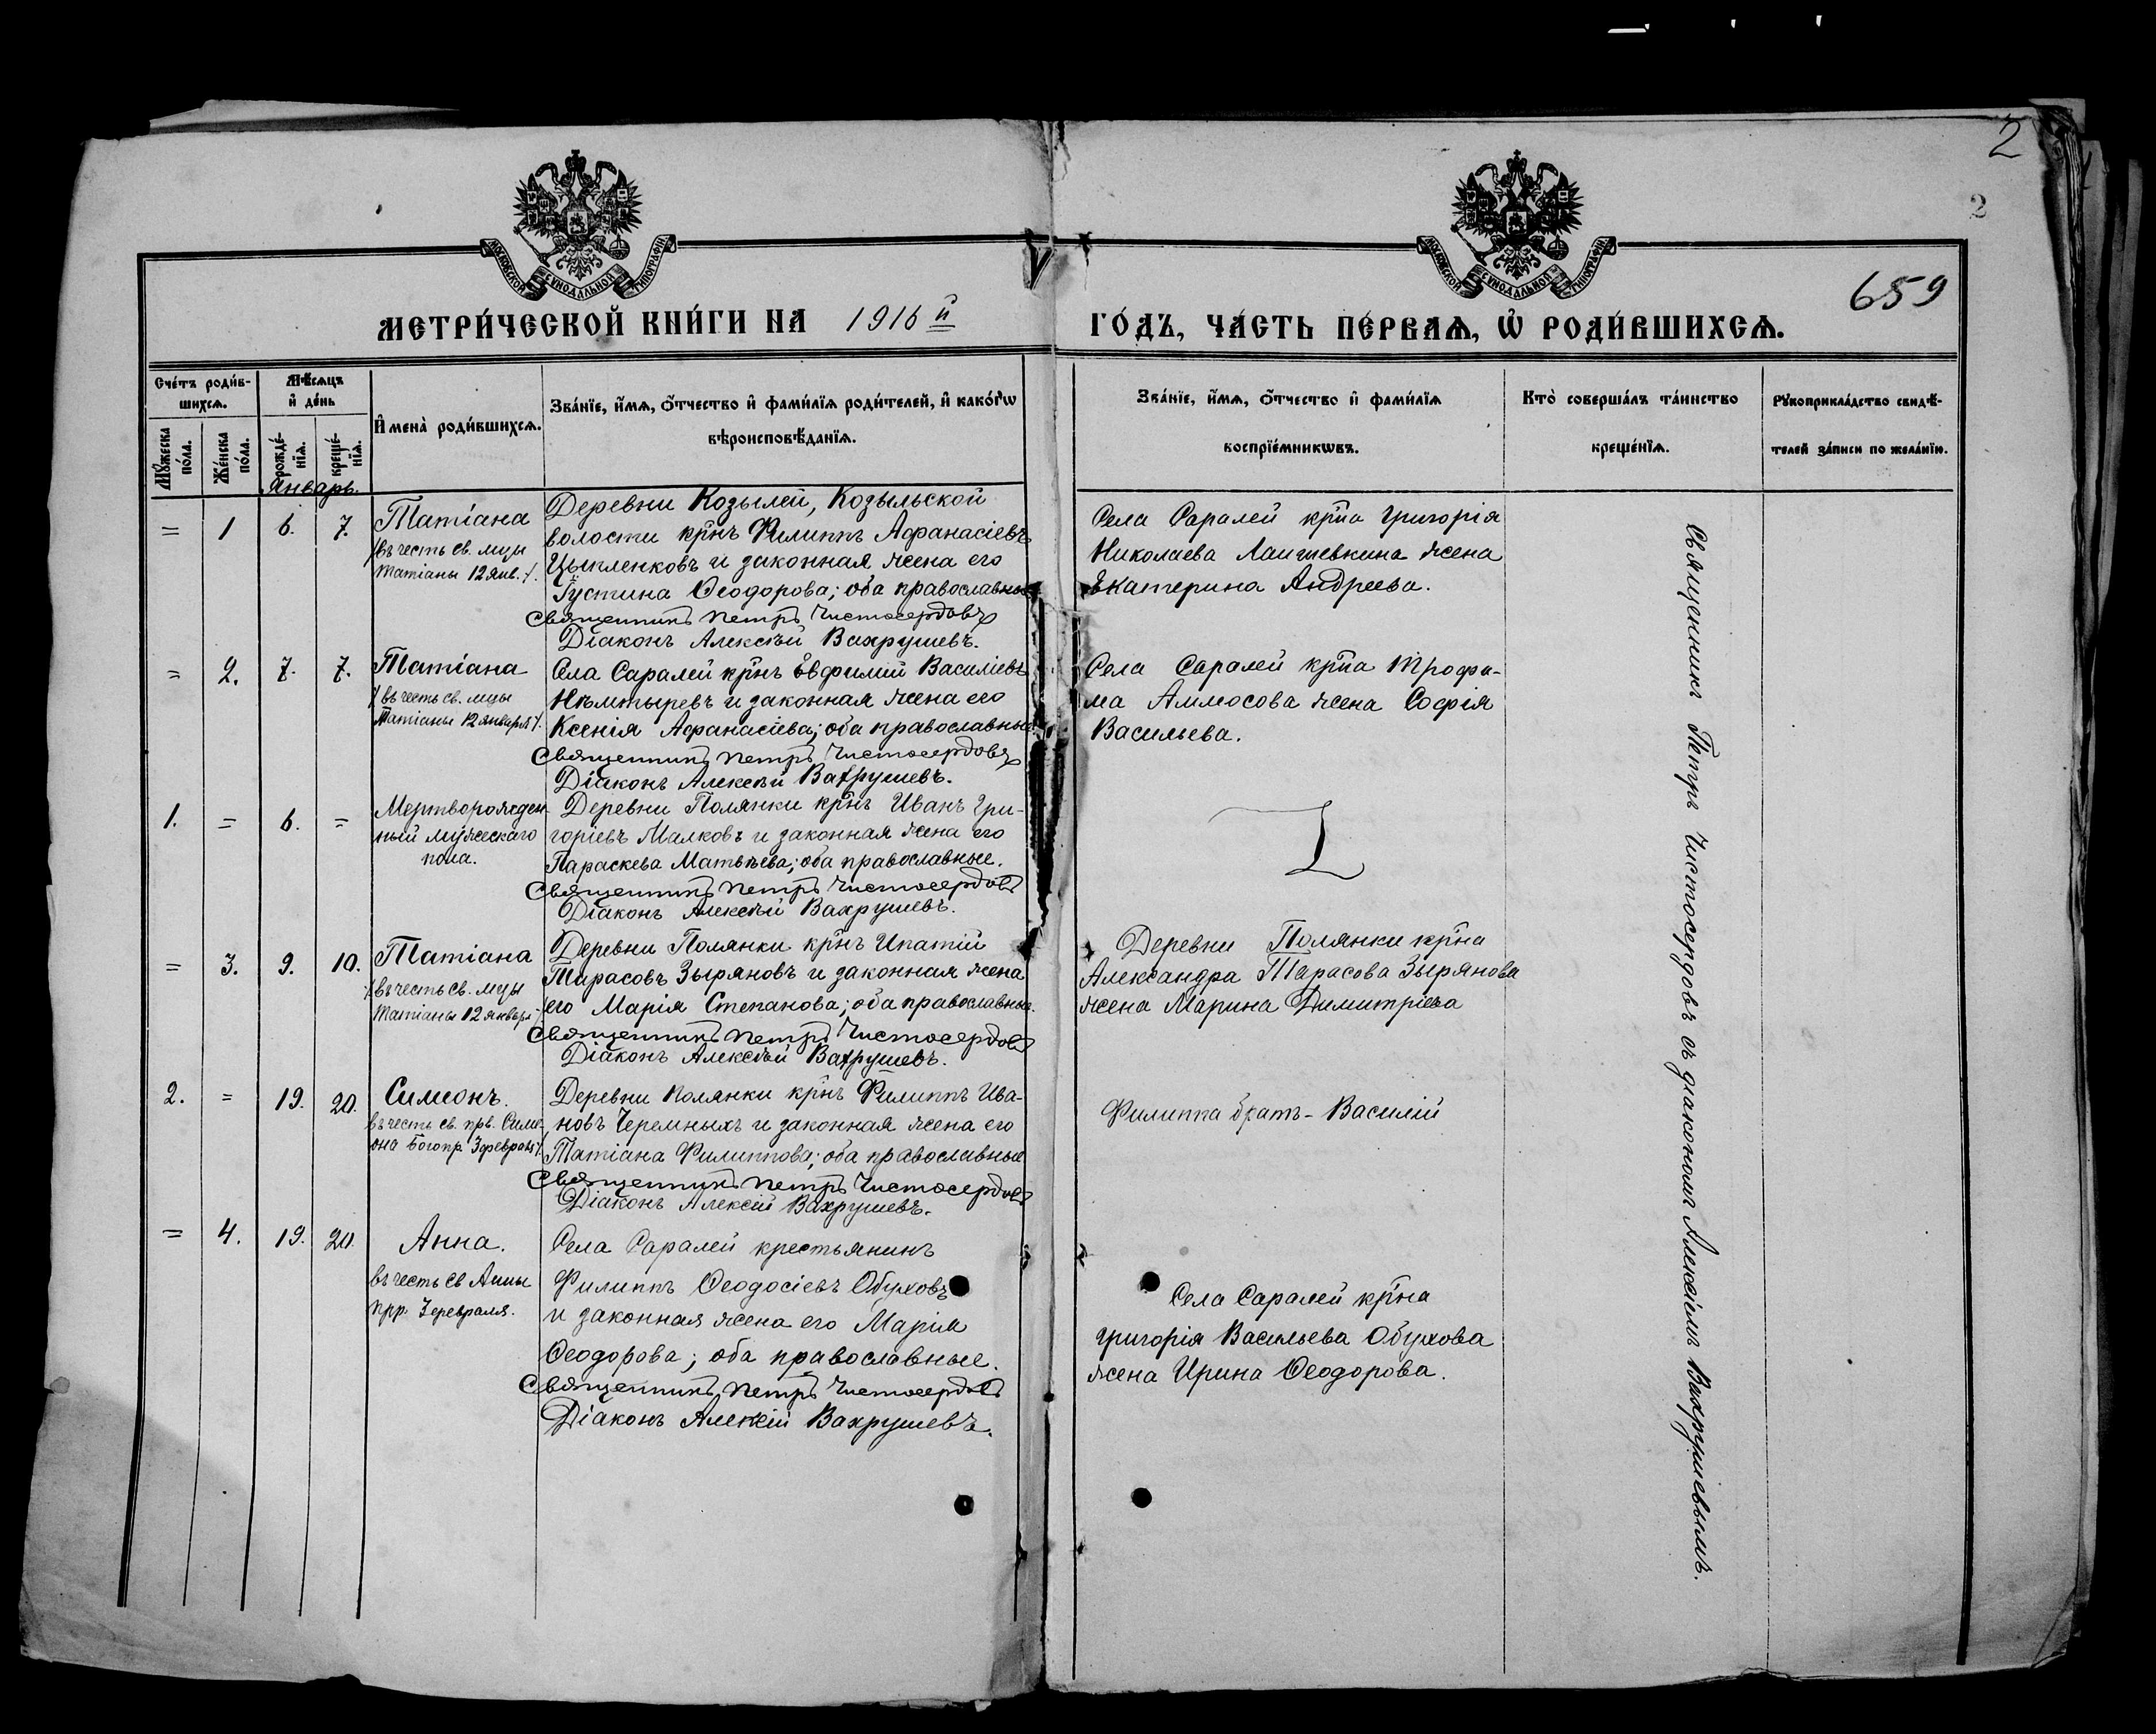 2
2
659
МОСКОВСКОЙ СѴНОДАЛЬНОЙ ТИПОГРАФІИ
МОСКОВСКОЙ СѴНОДАЛЬНОЙ ТИПОГРАФІИ
МЕТРИ́ЧЕСКОЙ КНИ́ГИ НА 1916 й ГО́ДЪ, ЧА́СТЬ ПЕ́РВАѦ, Ѿ РОДИ́ВШИХСѦ.
Сче́тъ роди́в-
шихсѧ.
Мѣ́сѧцъ
и҆ де́нь
Мꙋ́жеска
по́ла.
Же́нска
по́ла.
рожде́-
нїѧ.
креще́-
нїѧ.
И҆мена̀ роди́вшихсѧ.
Зва́нїе, и҆́мѧ, ѻ҆́тчество и҆ фами́лїѧ роди́телей, и҆ како́гѡ
вѣроисповѣ́данїѧ.
Зва́нїе, и҆́мѧ, ѻ҆́тчество и҆ фами́лїѧ
воспрїе́мникѡвъ.
Кто̀ соверша́лъ та́инство
креще́нїѧ.
Рꙋкоприкла́дство свидѣ́-
телей за́писи по жела́нїю.
Январь.
= 1 6. 7.
Татіана
/въ честь св. мцы
Татіаны 12 янв./.
Деревни Козылей, Козыльской
волости кр̃нъ Филиппъ Аѳанасіевъ
Цыпленковъ и законная жена его
Іустина Ѳеодорова; оба православные
Священникъ Петръ Чистосердовъ
Діаконъ Алексѣй Вахрушевъ.
Села Саралей кр̃на Григорія
Николаева Лаишевкина жена
Екатерина Андреева.
= 2. 7. 7.
Татіана
/въ честь св. мцы
Татіаны 12 января/.
Села Саралей кр̃нъ Евфимій Василіевъ
Нѣмтыревъ и законная жена его
Ксенія Аѳанасіева; оба православные
Священникъ Петръ Чистосердовъ
Діаконъ Алексѣй Вахрушевъ.
Села Саралей кр̃на Трофи-
ма Аммосова жена Софія
Васильева.
1. = 6. =
Мертворожден-
ный мужескаго
пола.
Деревни Полянки кр̃нъ Иванъ Гри-
горіевъ Малковъ и законная жена его
Параскева Матвѣева; оба православные.
Священникъ Петръ Чистосердовъ
Діаконъ Алексѣй Вахрушевъ.
= 3. 9. 10.
Татіана
/въ честь св. мцы
Татіаны 12 январ./
Деревни Полянки кр̃нъ Ипатій
Тарасовъ Зыряновъ и законная жена
его Марія Степанова; оба православные.
Священникъ Петръ Чистосердовъ
Діаконъ Алексѣй Вахрушевъ.
Деревни Полянки кр̃на
Александра Тарасова Зырянова
жена Марина Димитріева
2. = 19. 20.
Симеонъ.
въ честь св. прв. Симе-
она Богопр. 3 февраля/.
Деревни Полянки кр̃нъ Филиппъ Ива-
новъ Черемныхъ и законная жена его
Татіана Филиппова; оба православные
Священникъ Петръ Чистосердовъ
Діаконъ Алексій Вахрушевъ.
Филиппа братъ - Василій
= 4. 19. 20.
Анна.
въ честь св Анны
прр. 3 февраля.
Села Саралей крестьянинъ
Филиппъ Ѳеодосіевъ Обуховъ
и законная жена его Марія
Ѳеодорова; оба православные.
Священникъ Петръ Чистосердовъ
Діаконъ Алексій Вахрушевъ.
Села Саралей кр̃на
Григорія Васильева Обухова
жена Ирина Ѳеодорова.
Священникъ Петръ Чистосердовъ съ діакономъ Алексіемъ Вахрушевымъ.